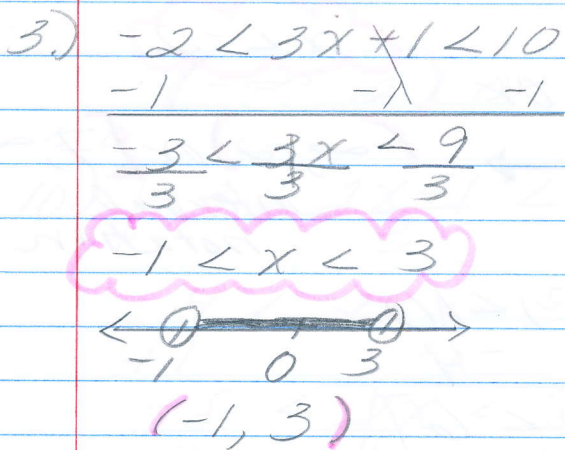 3.) -2 < 3x + 1 < 10
-1 -1 -1
-3 < 3x < 9
3 3 3
-1 < x < 3
-1 0 3
(-1, 3)